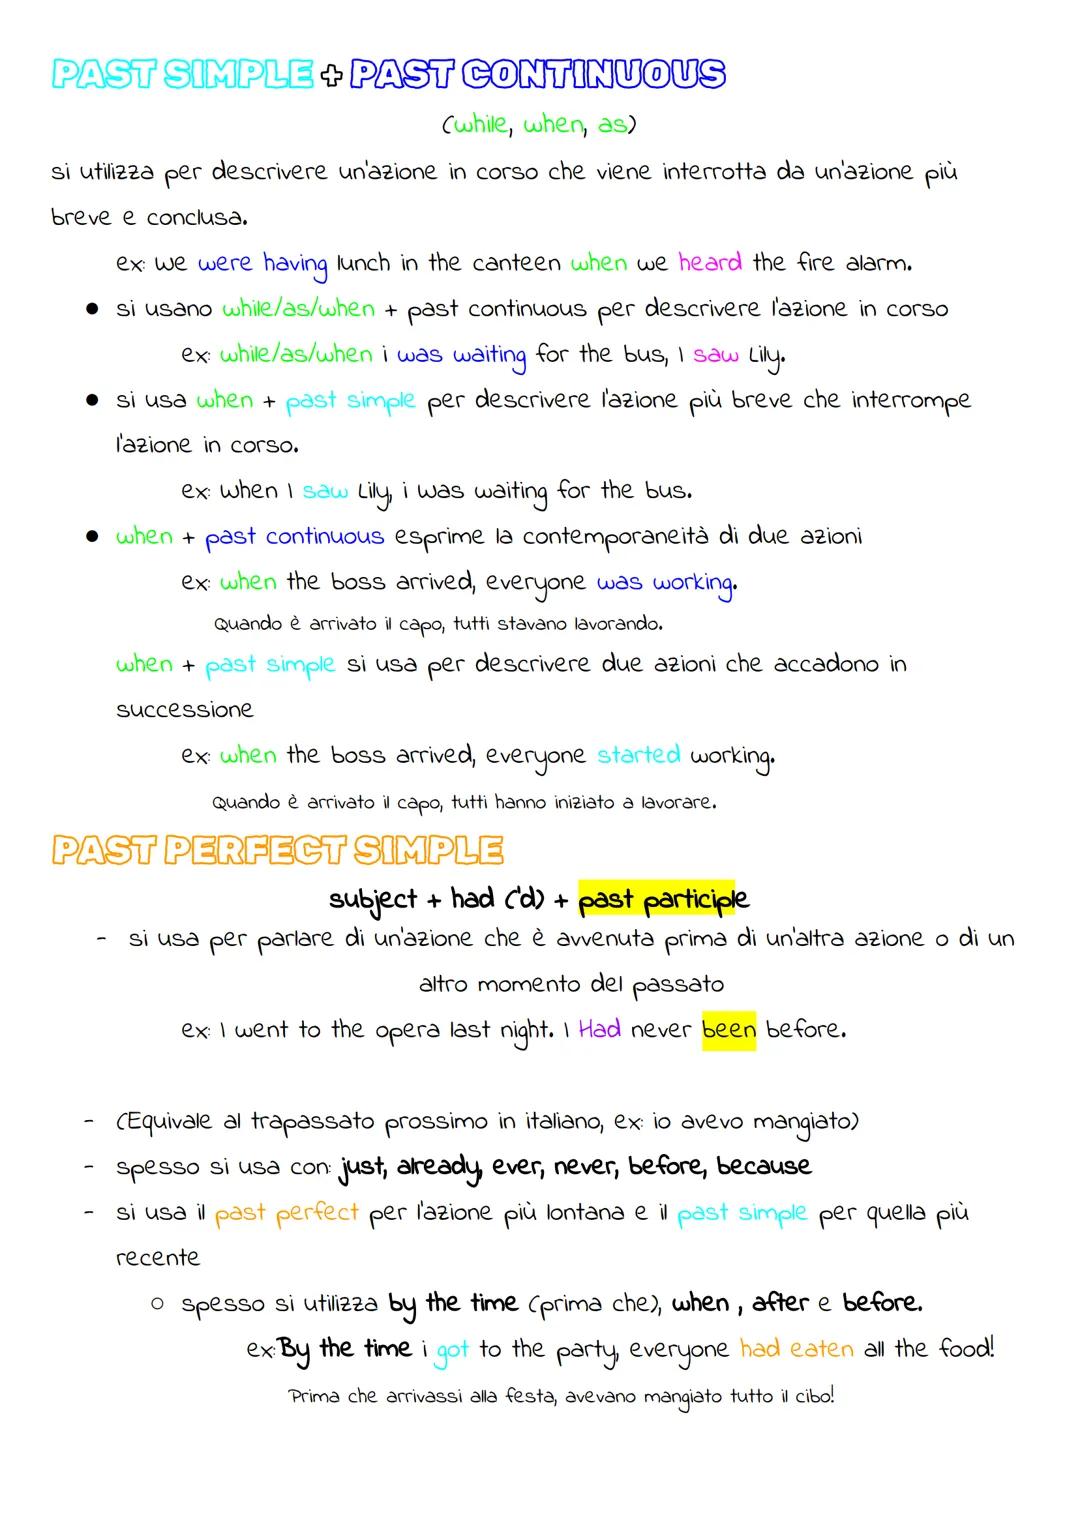 PAST SIMPLE + PAST CONTINUOUS
(while, when, as)
si utilizza per descrivere un'azione in corso che viene interrotta da un'azione più
breve e conclusa.
ex: we were having lunch in the canteen when we heard the fire alarm.
● si usano while/as/when + past continuous per descrivere l'azione in corso
ex: while/as/when i was waiting for the bus, I saw Lily.
● si usa when + past simple per descrivere l'azione più breve che interrompe
l'azione in corso.
ex: when I saw Lily, i was waiting for the bus.
● when + past continuous esprime la contemporaneità di due azioni
ex: when the boss arrived, everyone was working.
Quando è arrivato il capo, tutti stavano lavorando.
when + past simple si usa per descrivere due azioni che accadono in
successione
ex: when the boss arrived, everyone started working.
Quando è arrivato il capo, tutti hanno iniziato a lavorare.
PAST PERFECT SIMPLE
subject + had ('d) + past participle
- si usa per parlare di un'azione che è avvenuta prima di un'altra azione o di un
altro momento del passato
ex: I went to the opera last night. I Had never been before.
- (Equivale al trapassato prossimo in italiano, ex: io avevo mangiato)
- spesso si usa con: just, already, ever, never, before, because
- si usa il past perfect per l'azione più lontana e il past simple per quella più
recente
○ spesso si utilizza by the time (prima che), when , after e before.
ex: By the time i got to the party, everyone had eaten all the food!
Prima che arrivassi alla festa, avevano mangiato tutto il cibo!